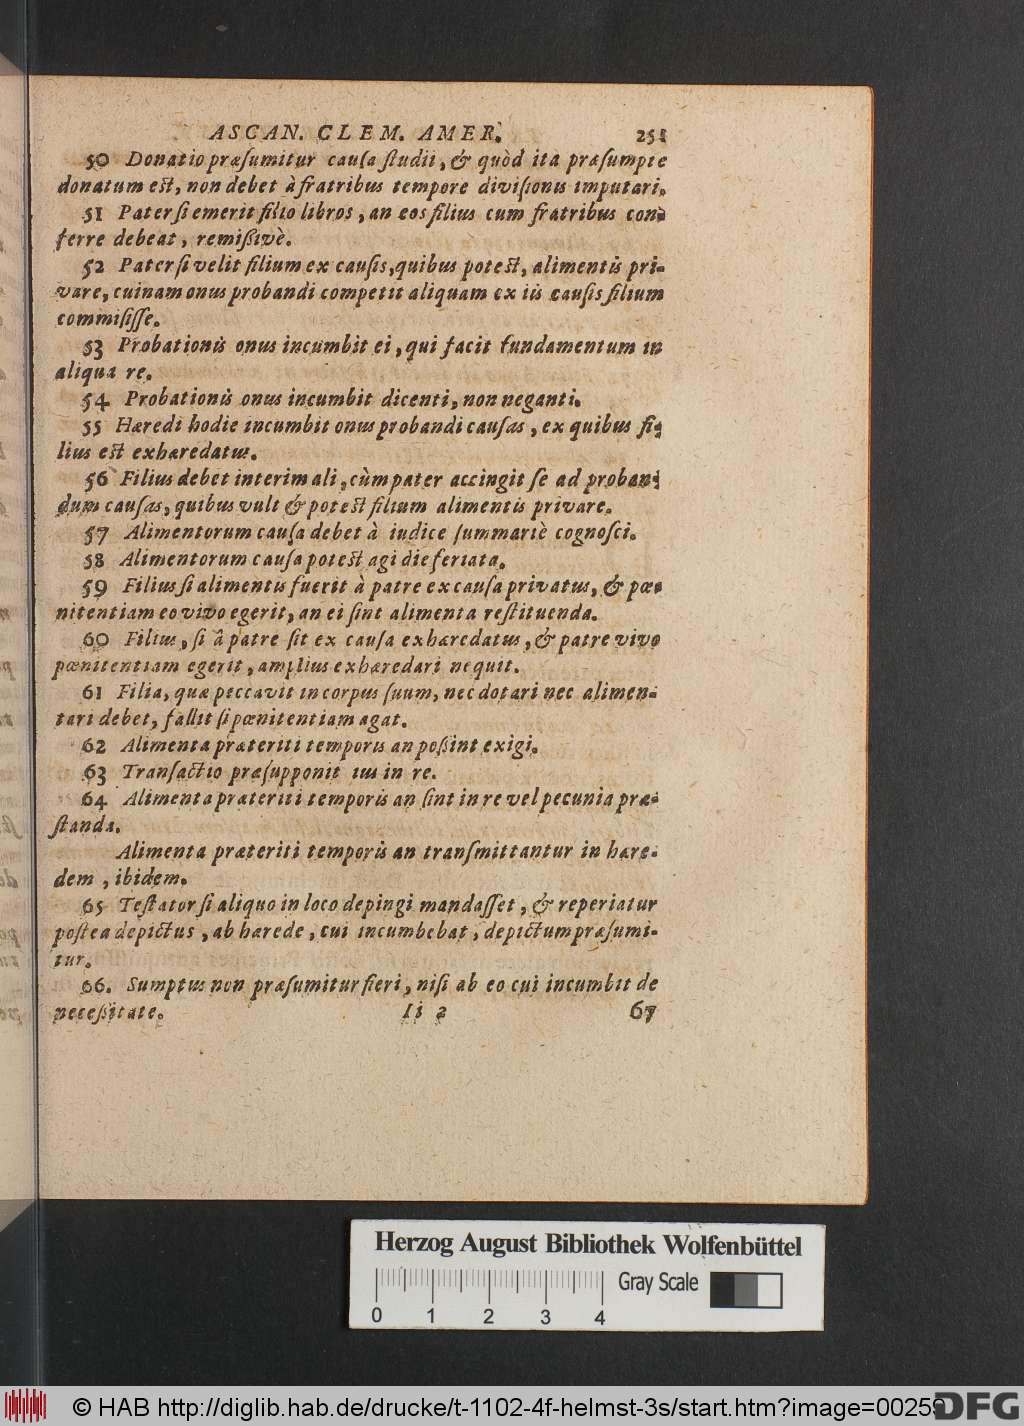 ASCAN. CLEM. AMER. 251
50 Donatio præſumitur cauſa ſtudii, & quòd ita præſumpte
donatum eſt, non debet à fratribus tempore diviſionis imputari.
51 Pater ſi emerit filio libros, an eos filius cum fratribus con-
ferre debeat, remiſſivè.
52 Pater ſi velit filium ex cauſis, quibus poteſt, alimentis pri-
vare, cuinam onus probandi competit aliquam ex iis cauſis filium
commiſiſſe.
53 Probationis onus incumbit ei, qui facit fundamentum in
aliqua re.
54 Probationis onus incumbit dicenti, non neganti.
55 Hæredi hodie incumbit onus probandi cauſas, ex quibus fi-
lius eſt exhæredatus.
56 Filius debet interim ali, cùm pater accingit ſe ad proban-
dum cauſas, quibus vult & poteſt filium alimentis privare.
57 Alimentorum cauſa debet à iudice ſummariè cognoſci.
58 Alimentorum cauſa poteſt agi die feriata.
59 Filius ſi alimentis fuerit à patre ex cauſa privatus, & pœ-
nitentiam eo vivo egerit, an ei ſint alimenta reſtituenda.
60 Filius, ſi à patre ſit ex cauſa exhæredatus, & patre vivo
pœnitentiam egerit, amplius exhæredari nequit.
61 Filia, quæ peccavit in corpus ſuum, nec dotari nec alimen-
tari debet, fallit ſi pœnitentiam agat.
62 Alimenta præteriti temporis an poßint exigi.
63 Tranſactio præſupponit ius in re.
64 Alimenta præteriti temporis an ſint in re vel pecunia præ-
ſtanda.
Alimenta præteriti temporis an tranſmittantur in hære-
dem, ibidem.
65 Teſtator ſi aliquo in loco depingi mandaſſet, & reperiatur
poſtea depictus, ab hærede, cui incumbebat, depictum præſumi-
tur.
66. Sumptus non præſumitur fieri, niſi ab eo cui incumbit de
neceßitate. Ii 2 67
Herzog August Bibliothek Wolfenbüttel
Gray Scale
0 1 2 3 4
© HAB http://diglib.hab.de/drucke/t-1102-4f-helmst-3s/start.htm?image=00259
DFG